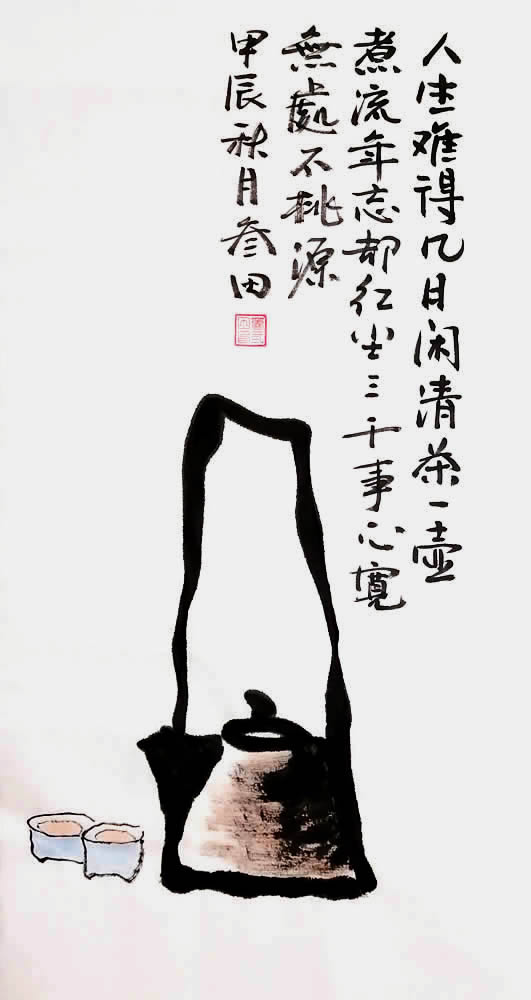 人生难得几日闲清茶一壶
煮流年忘却红尘三千事心寬
無處不桃源
甲辰秋月叁田